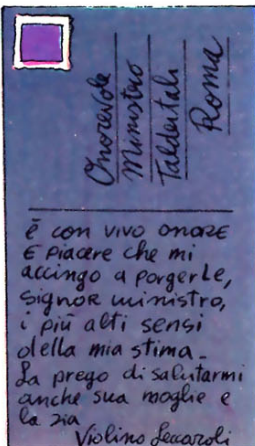 Onorevole
Ministro
Taldeitali
Roma
è con vivo onore
E piacere che mi
accingo a porgerLe,
signor ministro,
i più alti sensi
della mia stima_
La prego di salutarmi
anche sua moglie e
la zia
Violino Leccaroli